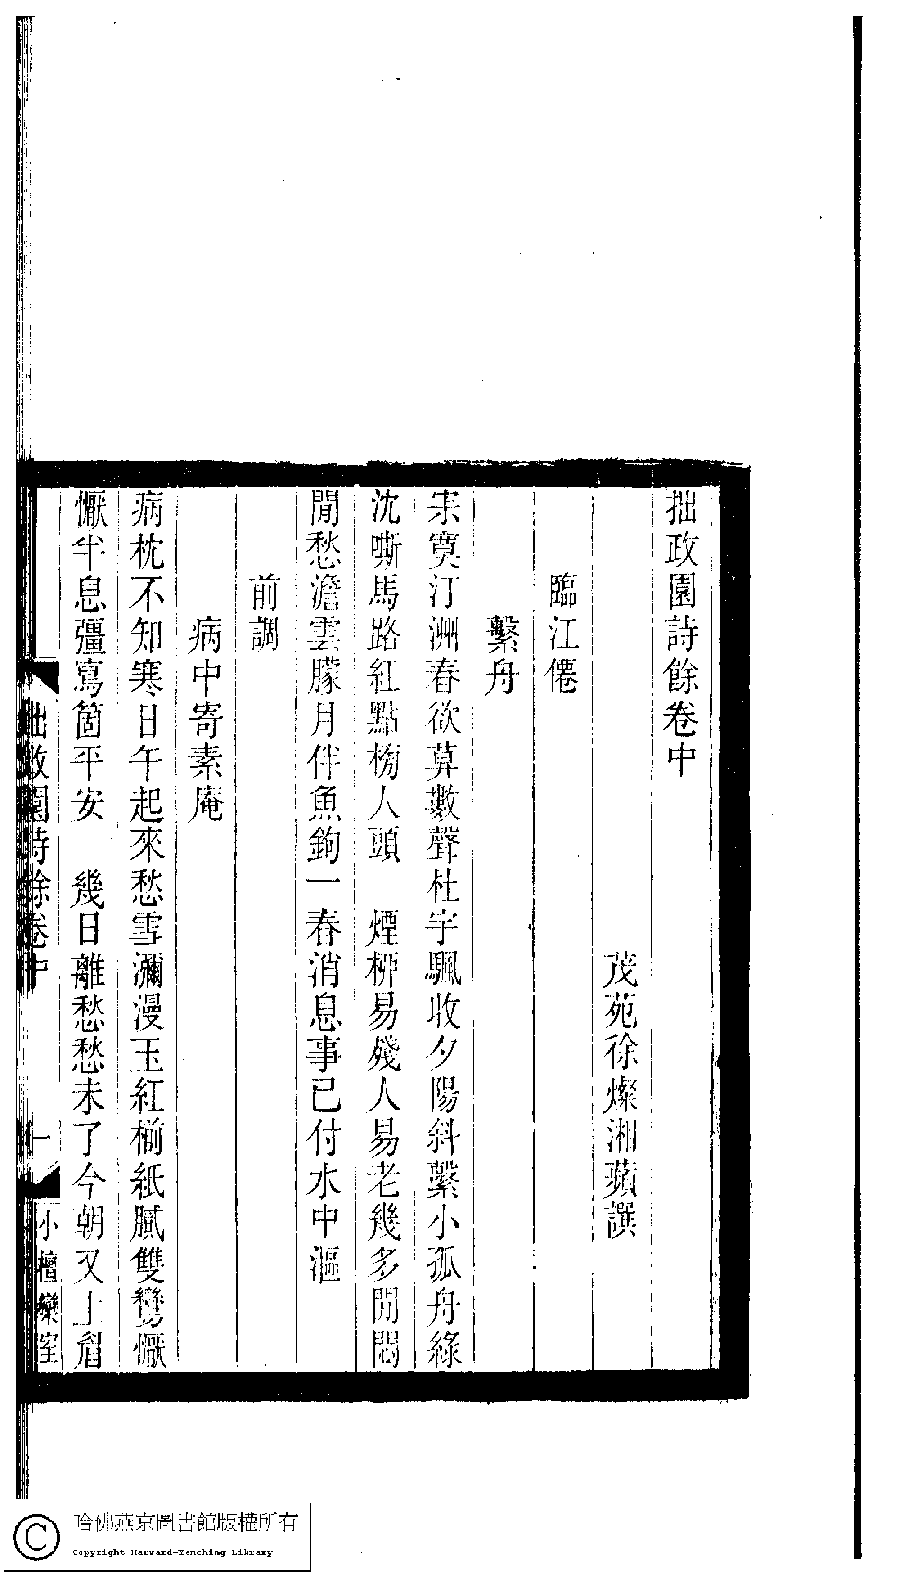 拙政園詩餘卷中
茂苑徐燦湘蘋譔
臨江僊
繫舟
𡧘寞汀洲春欲莫數聲杜宇颿收夕陽斜繫小孤舟綠
沈嘶馬路紅點榜人頭　煙柳易殘人易老幾多閒悶
閒愁澹雲朦月伴魚鉤一春消息事已付水中漚
前調
病中寄素庵
病枕不知寒日午起來愁雪瀰漫玉紅椾紙膩雙鸞懨
懨半息彊寫箇平安　幾日離愁愁未了今朝又上眉
拙政園詩餘卷中
一
小檀欒室
哈佛燕京圖書館版權所有
Copyright Harvard-Yenching Library